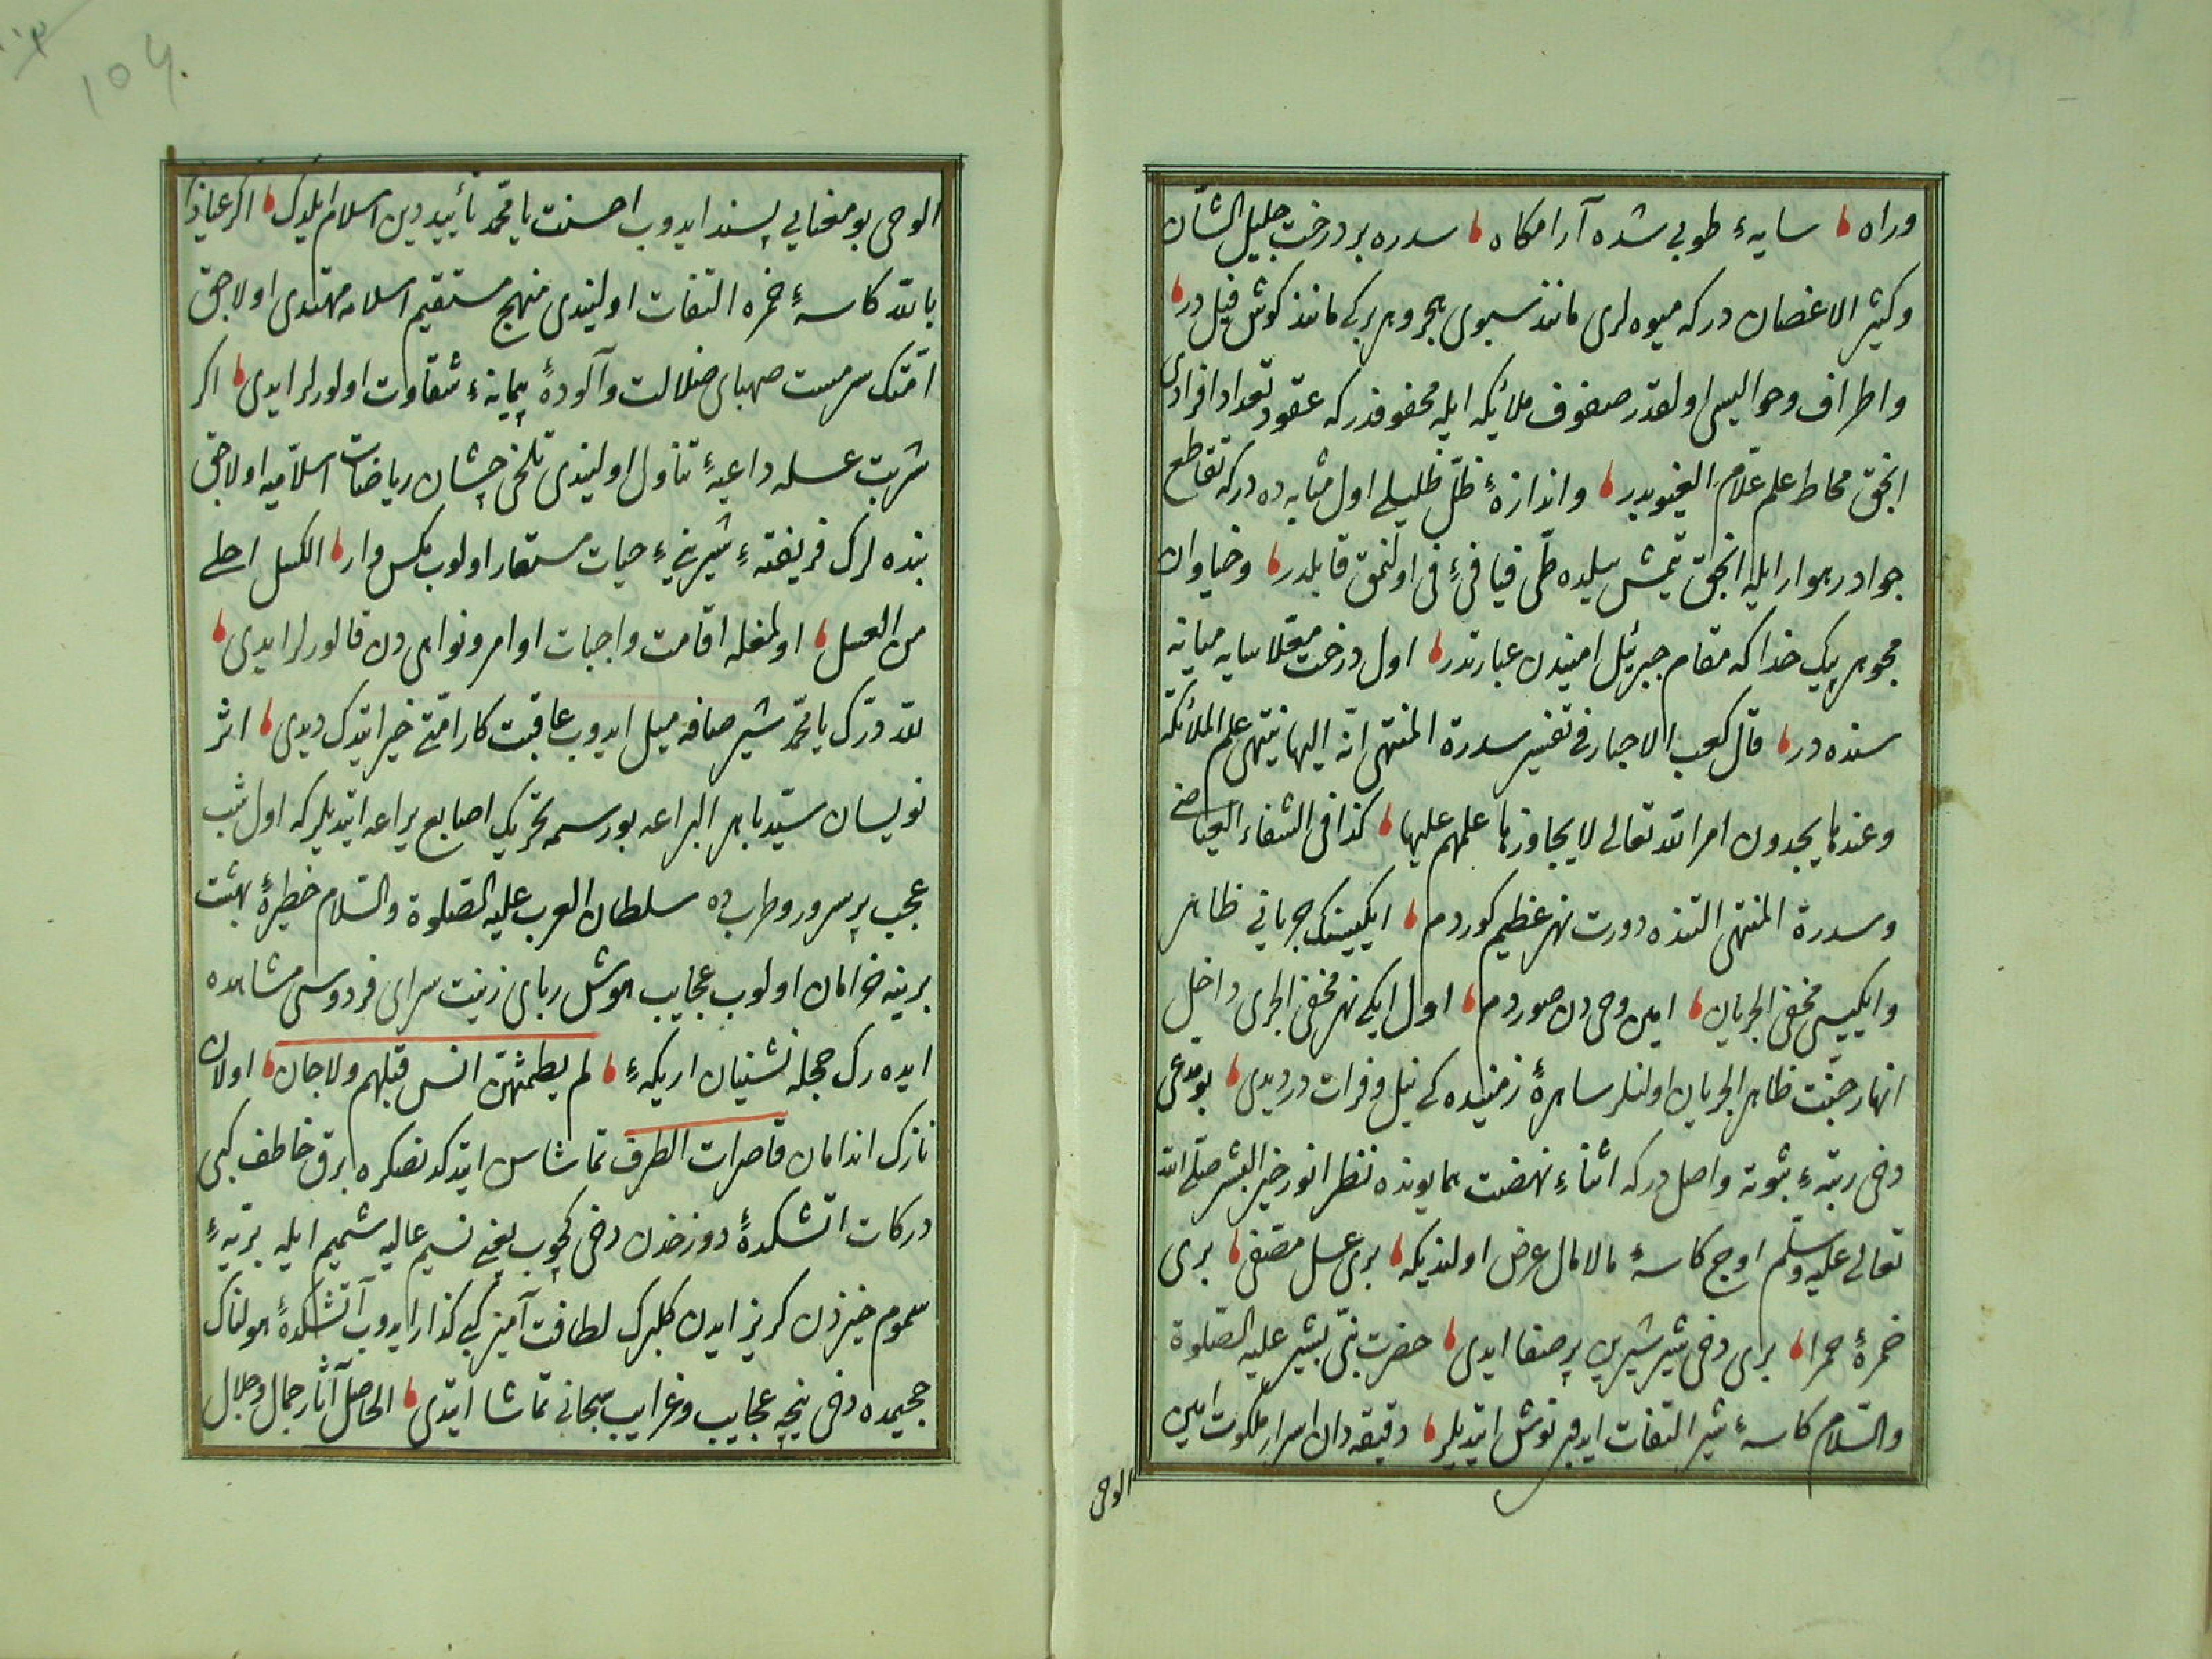 وراه ، سایهٔ طوبی شده آرامکاه ، سدره بر درخت جلیل الشأن
وکثیر الاغصان درکه میوه لری مانند سبوی هجر وهر برکی مانند کوش فیل در ،
واطراف وحوالیسی اولقدر صفوف ملائکه ایله محفوفدرکه عقود تعداد افرادی
انجق محاط علم علّام الغیوبدر ، واندازهٔ ظلّ ظلیلی اول مثابه ده درکه تقاطع
جواد رهوار ایله انجق یتمش ییلده طی فیافیٔ فی اولنمق قابلدر ، وخیاوان
مجوهر پیک خداکه مقام جبرئیل امیندن عبارتدر ، اول درخت معلّا سایه میانه
سنده در ، قال کعب الاحبار فی تفسیر سدرة المنتهی انّه الیها ینتهی علم الملائکه
وعندها یجدون امر الله تعالی لا یجاوزها علمهم علیها ، کذا فی الشفاء العیاضی
وسدرة المنتهی التنده دورت نهر عظیم کوردم ، ایکیسنک جریانی ظاهر
وایکیسی مخفی الجریان ، امین وحی دن صوردم ، اول ایکی نهر مخفی الجری داخل
انهار جنّت ظاهر الجریان اولنلر ساهرهٔ زمینده کی نیل وفرات در دیدی ، بو مدعی
دخی رتبهٔ ثبوته واصل درکه اثناء نهضت همایونده نظر انور خیر البشر صلّی الله
تعالی علیه وسلّم اوج کاسهٔ مالامال عرض اولندیکه ، بری عسل مصفی ، بری
خمرهٔ حمرا ، بری دخی شیر شیرین پر صفا ایدی ، حضرت نبیّ بشیر علیه الصّلوة
والسّلام کاسهٔ شیر التفات ایدوب نوش ایتدیلر ، دقیقه دان اسرار ملکوت امین
الوحی
الوحی بو معنایی پسند ایدوب احسنت یا محمّد تأیید دین اسلام ایلدک ، اکر عیاذا
بالله کاسهٔ خمره التفات اولنیدی منهج مستقیم اسلامه مهتدی اولاجق
امّتک سرمست صهبای ضلالت وآلودهٔ پیمانهٔ شقاوت اولورلر ایدی ، اکر
شربت عسله داعیهٔ تناول اولنیدی تلخی چشان ریاضات اسلامیه اولاجق
بنده لرک فریفتهٔ شیرینیٔ حیات مستعار اولوب مکس وار ، الکسل احلی
من العسل ، اولمغله اقامت واجبات اوامر ونواهی دن قالورلر ایدی ،
لله درّک یا محمّد شیر صافه میل ایدوب عاقبت کار امّتی خیر ایتدک دیدی ، اثر
نویسان سیّد باهر البراعه بو رسمه تحریک اصابع یراعه ایتدیلرکه اول شب
عجب پر سرور وطرب ده سلطان العرب علیه الصّلوة والسّلام خطیرهٔ بهشت
برینه خرامان اولوب عجایب هوش ربای زینت سرای فردوسی مشاهده
ایده رک حجله نشینان اریکهٔ ، لم یطمثهنّ انس قبلهم ولا جان ، اولان
نازک اندامان قاصرات الطرف تماشاسن ایتدکدنصکره برق خاطف کبی
درکات اتشکدهٔ دوزخدن دخی کچوب یعنی نسیم عالیه شمیم ایله بریهٔ
سموم خیزدن کریز ایدن کلبرک لطافت آمیز کبی کذار ایدوب آتشکدهٔ هولناک
جحیمده دخی نیچه عجایب وغرایب سبحانی تماشا ایتدی ، الحاصل آثار جمال وجلال